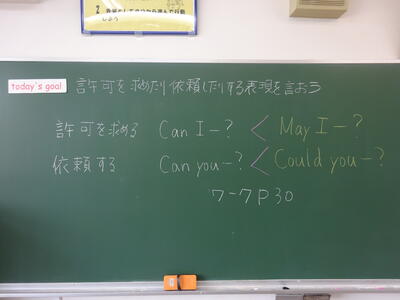 today's goal 許可を求めたり依頼したりする表現を言おう
許可を求める Can I ー? < May I ー?
依頼する Can you ー? < Could you ー?
ワークP30